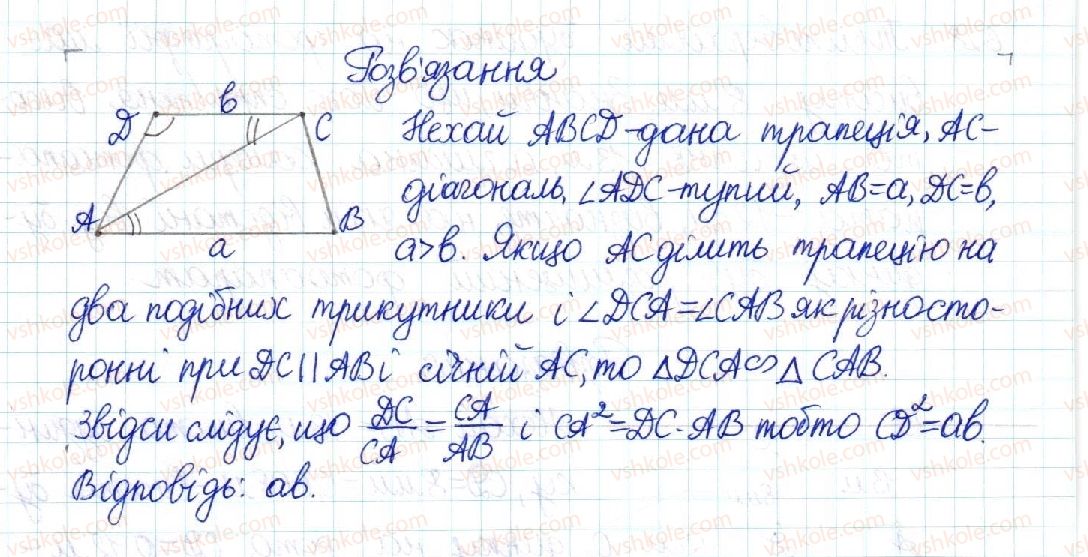 Розв'язання
в
D
C
A
B
a
Нехай ABCD-дана трапеція, AC-
діагональ, ∠ADC-тупий, AB=a, DC=в,
a>в. Якщо AC ділить трапецію на
два подібних трикутники і ∠DCA=∠CAB як різносто-
ронні при DC||AB і січній AC, то △DCA∽△CAB.
Звідси слідує, що DC/CA = CA/AB і CA²=DC·AB тобто CD²=aв.
Відповідь: aв.
vshkole.com